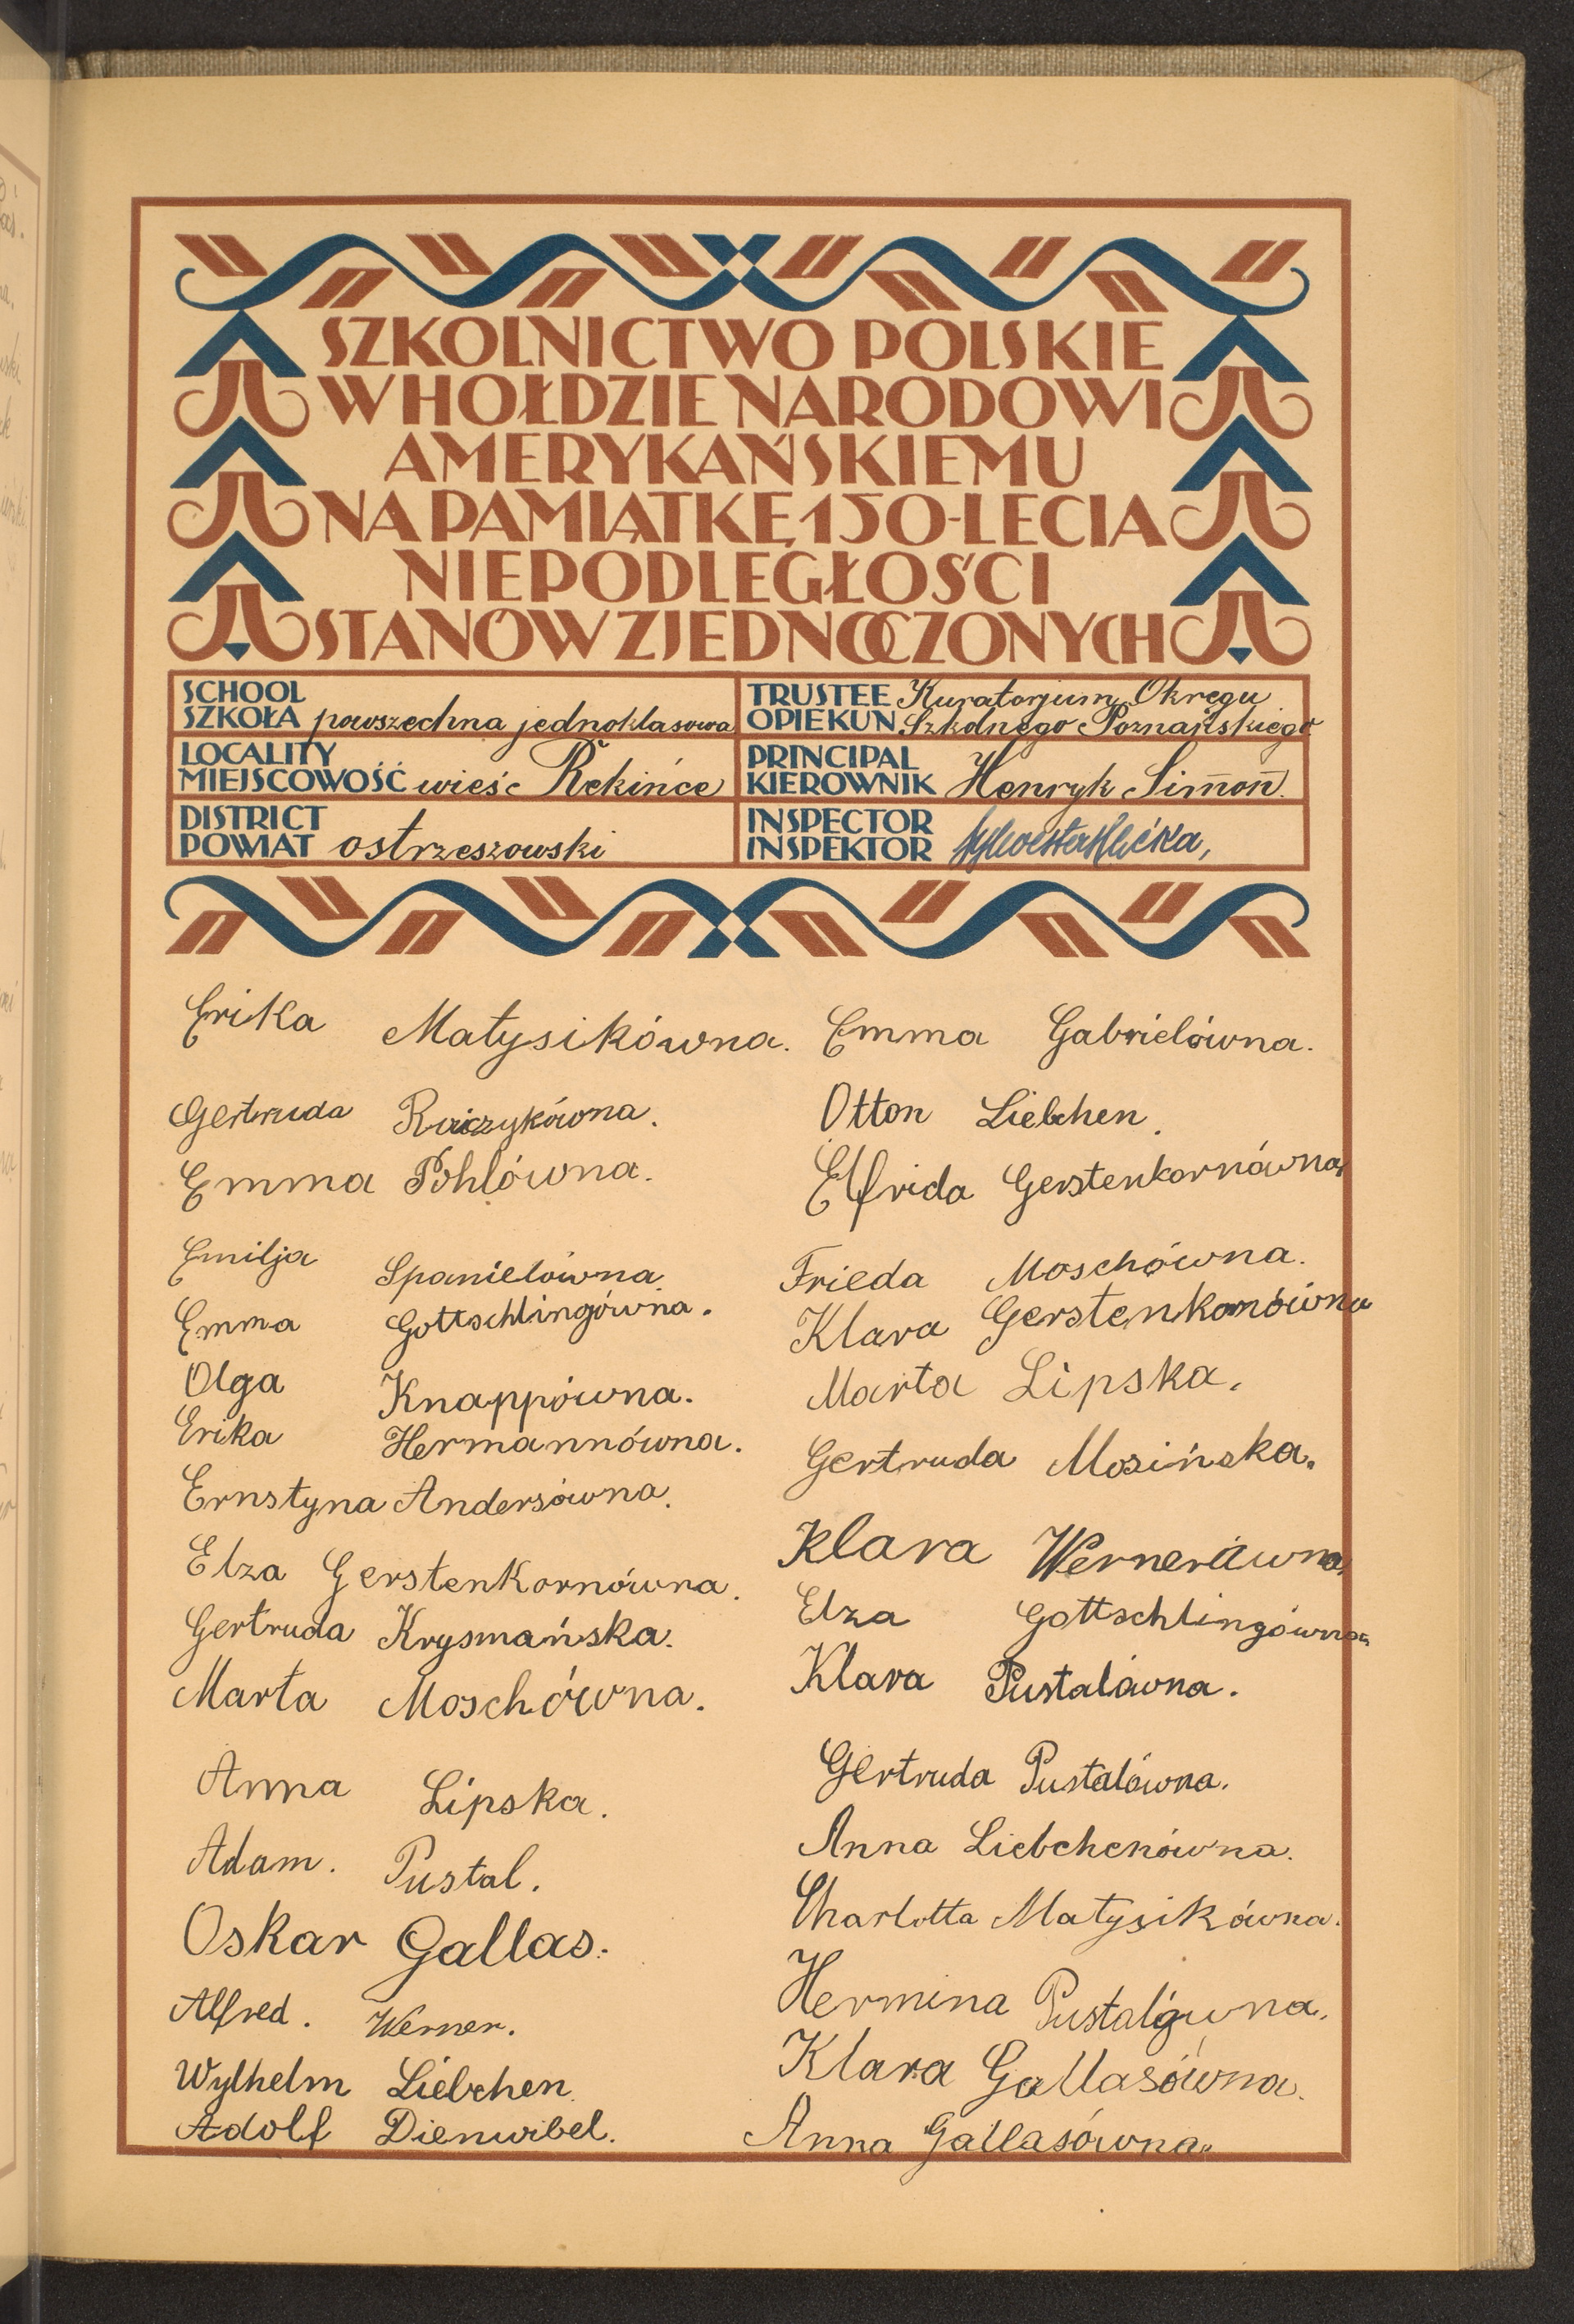 SZKOLNICTWO POLSKIE
W HOŁDZIE NARODOWI
AMERYKAŃSKIEMU
NA PAMIĄTKĘ 150-LECIA
NIEPODLEGŁOŚCI
STANÓW ZJEDNOCZONYCH
SCHOOL
SZKOŁA powszechna jednoklasowa
TRUSTEE Kuratorjum Okręgu
OPIEKUN Szkolnego Poznańskiego
LOCALITY
MIEJSCOWOŚĆ wieś Rekińce
PRINCIPAL
KIEROWNIK Henryk Simon
DISTRICT
POWIAT ostrzeszowski
INSPECTOR
INSPEKTOR
Erika Matysikówna.
Gertruda Raczykówna.
Emma Pohlówna.
Emilja Spanielówna
Emma Gottschlingówna.
Olga Knappówna.
Erika Hermannówna.
Ernstyna Andersówna.
Elza Gerstenkornówna.
Gertruda Krysmańska.
Marta Moschówna.
Anna Lipska.
Adam. Pustal.
Oskar Gallas.
Alfred. Werner.
Wylhelm Liebchen
Adolf Dienwibel.
Emma Gabrielówna.
Otton Liebchen.
Elfrida Gerstenkornówna,
Frieda Moschówna.
Klara Gerstenkornówna
Marta Lipska.
Gertruda Mosińska.
Klara Wernerówna,
Elza Gottschlingówna.
Klara Pustalówna.
Gertruda Pustalówna.
Anna Liebchenówna.
Charlotta Matysikówna.
Hermina Pustalówna.
Klara Gallasówna.
Anna Gallasówna.